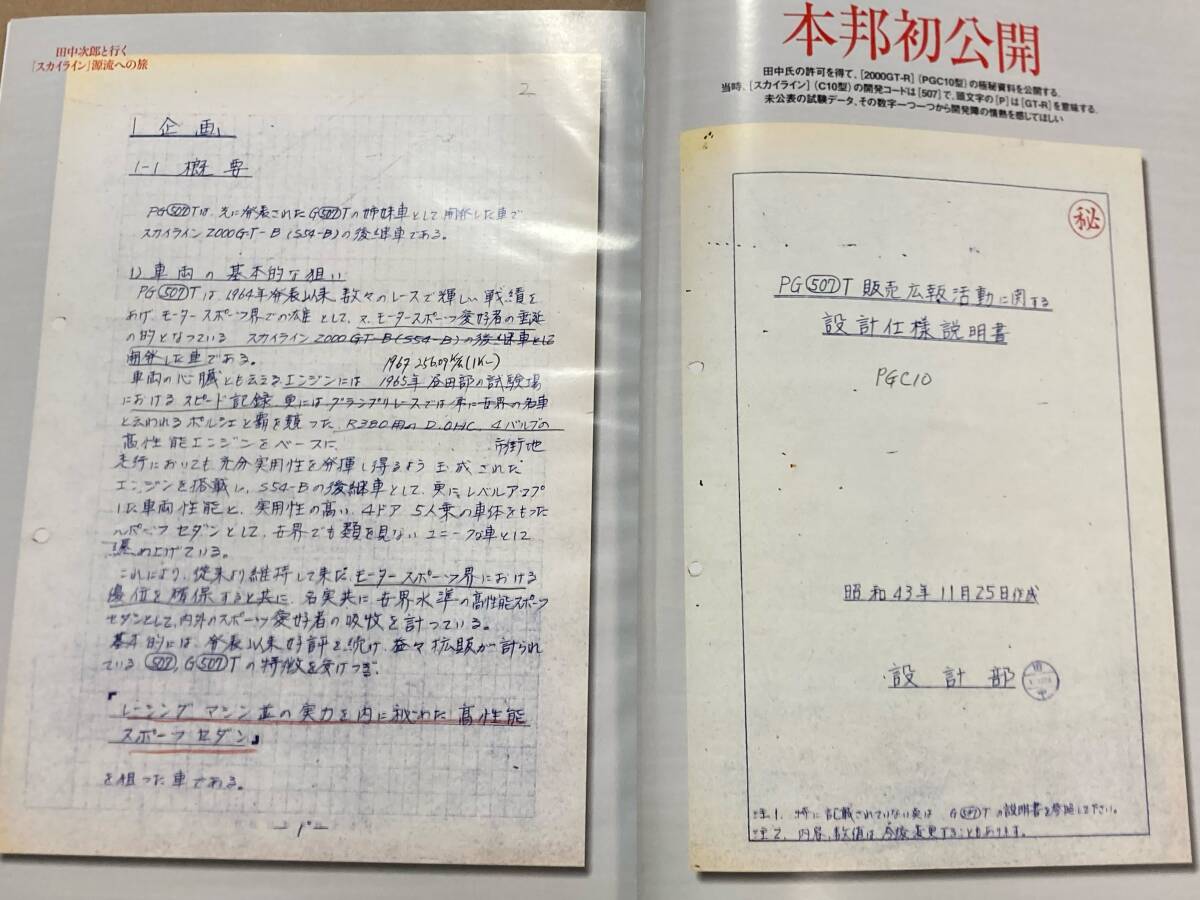 田中次郎と行く
「スカイライン」源流への旅
2
1 企画
1-1 概要
PG507Tは、先に発表されたG507Tの姉妹車として開発した車で
スカイライン2000GT-B(S54-B)の後継車である。
1) 車両の基本的な狙い
PG507Tは、1964年発表以来 数々のレースで輝しい戦績を
あげ、モータースポーツ界での雄として、又、モータースポーツ愛好者の垂涎
の的となっている スカイライン2000GT-B(S54-B)の後継車として
開発した車である。
1967 256.09㌔/h(1K~)
車両の心臓とも云えるエンジンには 1965年 谷田部の試験場
における スピード記録 更には グランプリレースでは 常に世界の名車
と云われるポルシェと覇を競った、R380用のD.OHC, 4バルブの
高性能エンジンをベースに、
市街地
走行においても充分実用性を発揮し得るよう 玉成された
エンジンを搭載し、S54-Bの後継車として、更に、レベルアップ
した車両性能と、実用性の高い、4ドア 5人乗の車体をもった
スポーツセダンとして、世界でも類を見ない ユニークな車として
纏め上げている。
これにより、従来より維持して来た、モータースポーツ界における
優位を確保すると共に、名実共に世界水準の高性能スポーツ
セダンとして、内外のスポーツ愛好者の吸收を計っている。
基本的には、発表以来好評を続け、益々拡販が計られ
ている 507, G507Tの特徴を受けつぎ、
『レーシングマシン並の実力を内に秘めた 高性能
スポーツセダン』
を狙った車である。
-1-
本邦初公開
田中氏の許可を得て、[2000GT-R](PGC10型)の極秘資料を公開する。
当時、[スカイライン](C10型)の開発コードは[507]で、頭文字の[P]は[GT-R]を意味する。
未公表の試験データ、その数字一つ一つから開発陣の情熱を感じてほしい
秘
PG507T 販売広報活動に関する
設計仕様説明書
PGC10
昭和43年11月25日作成
設計部
田中
注1. 特に記載されていない項は G507Tの説明書を参照して下さい。
注2. 内容、数値は 今後変更することもあります。